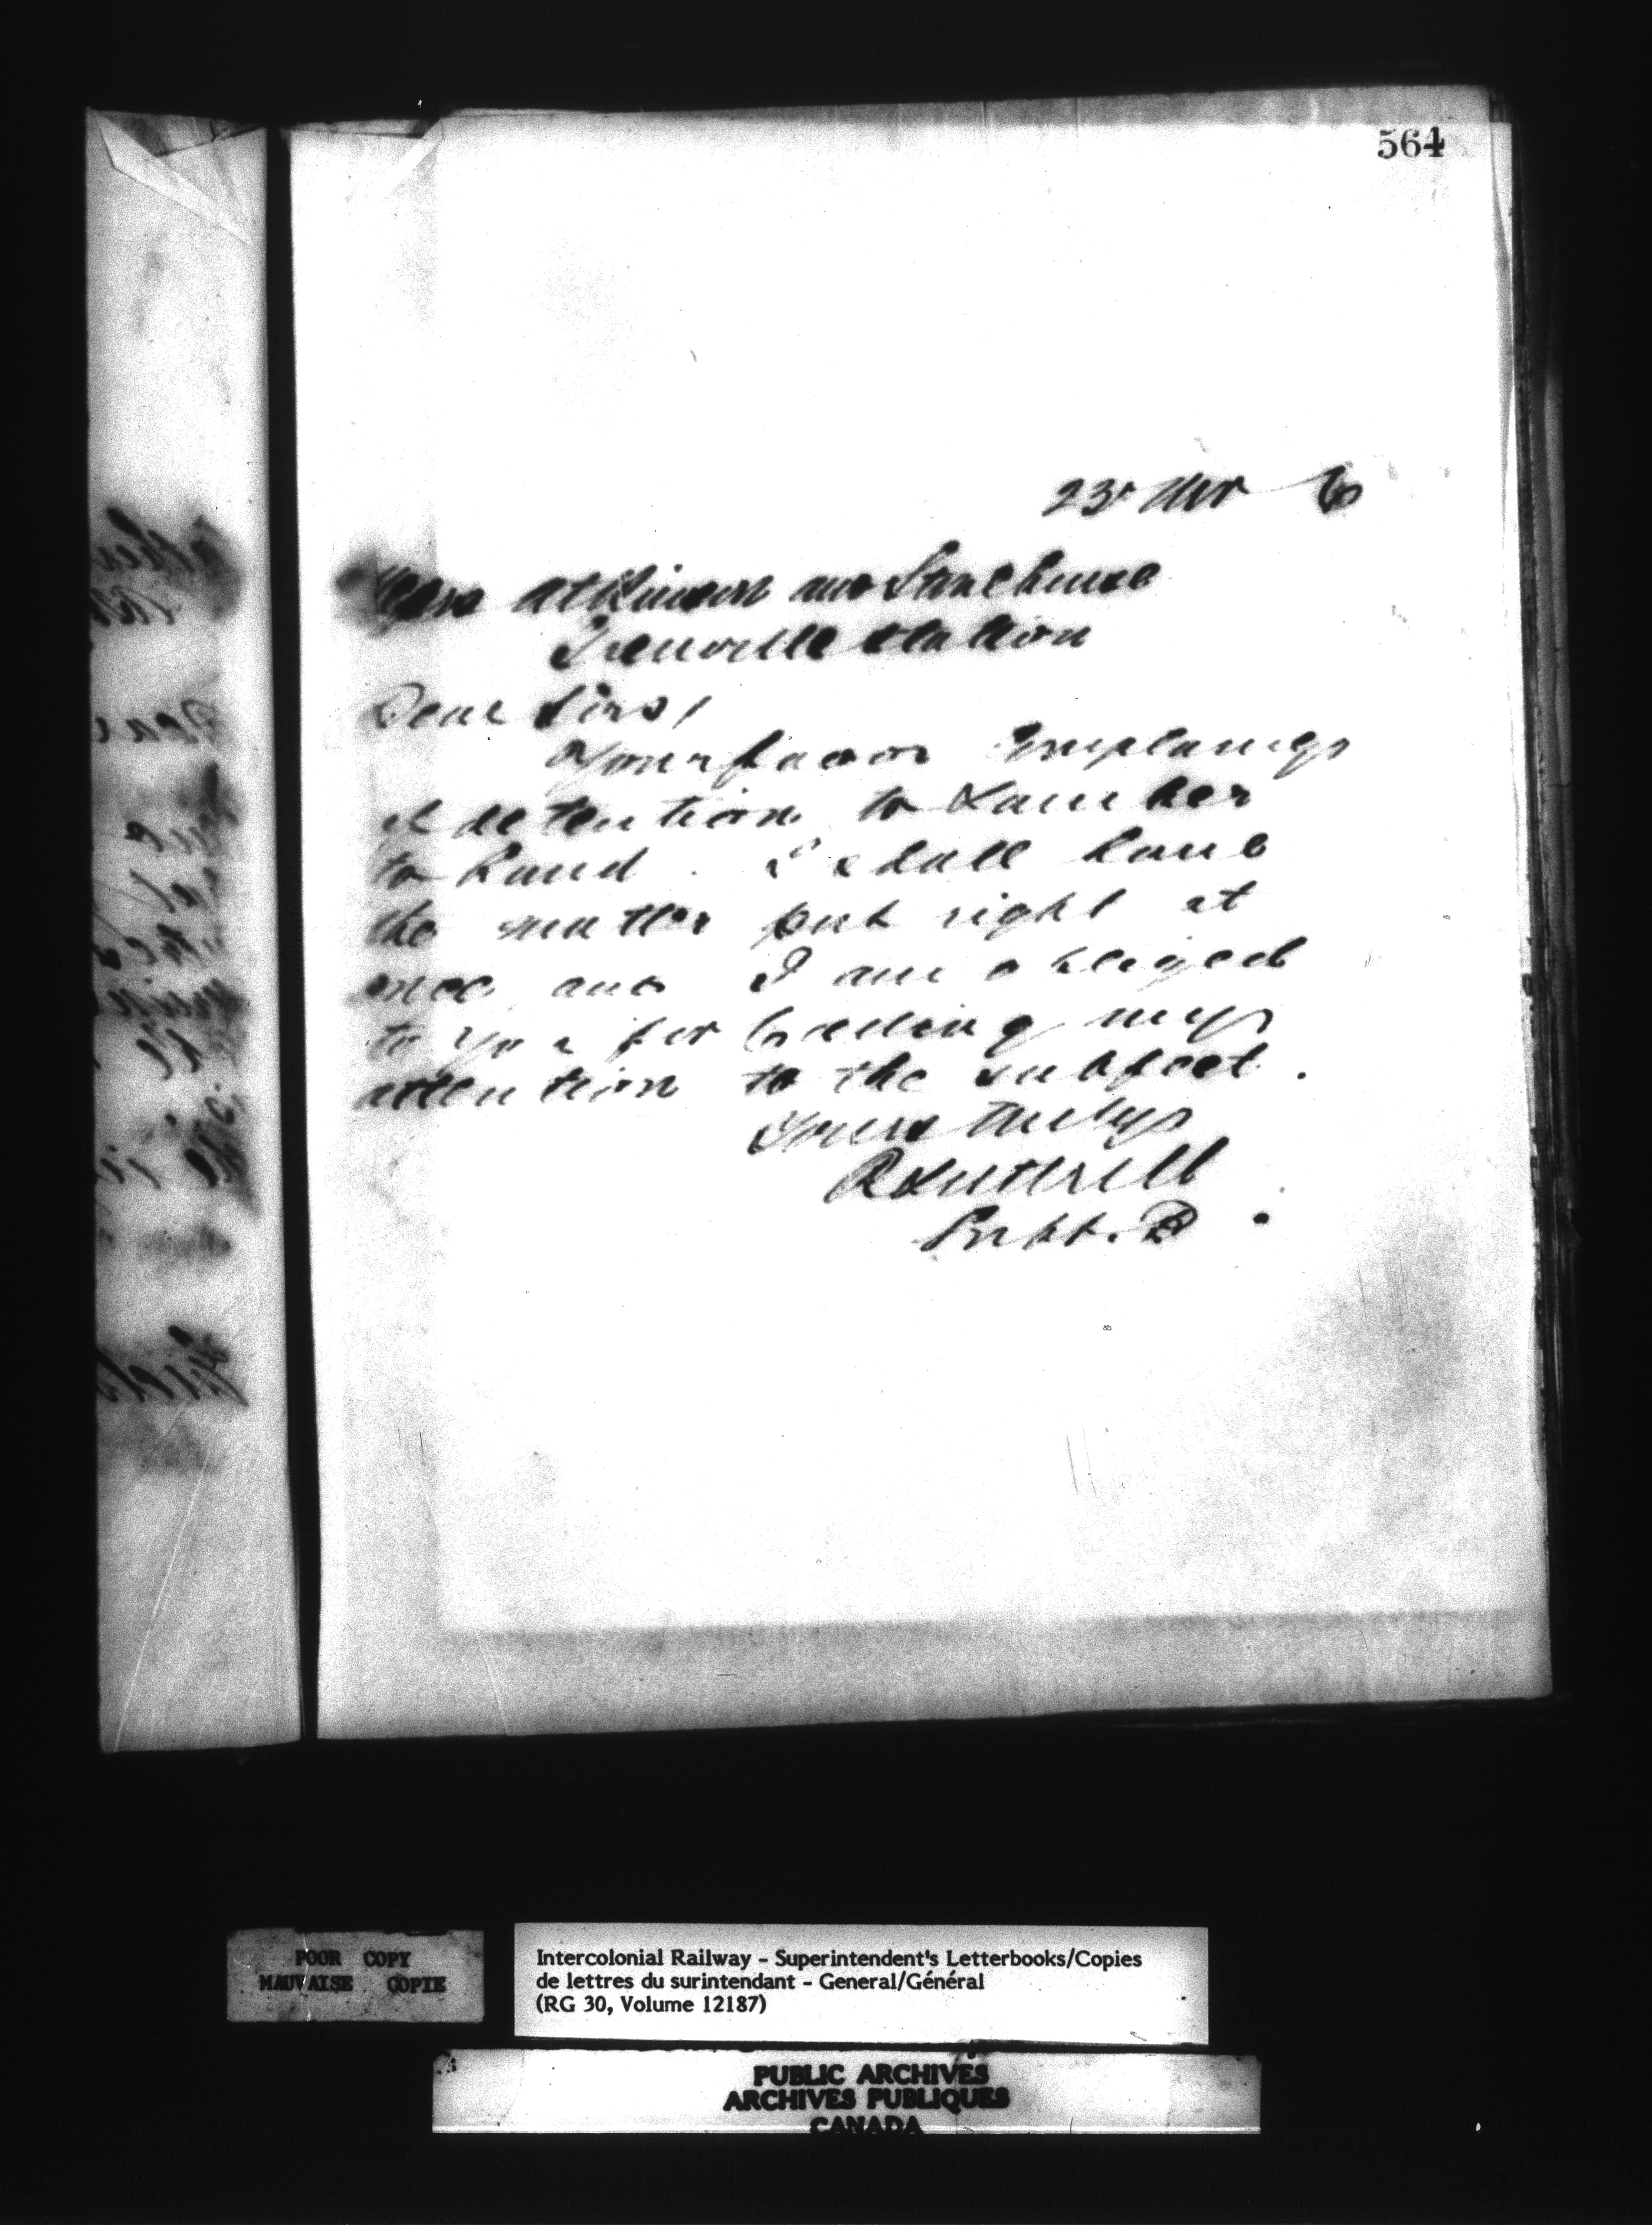 564
23
Atkinson and Stonehouse
Grenville Station
Dear Sirs,
Your favor Complaining
of detention to Lumber
to hand. I shall have
the matter put right at
once and I am obliged
to you for Calling my
attention to the subject.
Yours truly
R Luttrell
Supt.
POOR COPY
MAUVAISE COPIE
Intercolonial Railway - Superintendent's Letterbooks/Copies
de lettres du surintendant - General/Général
(RG 30, Volume 12187)
PUBLIC ARCHIVES
ARCHIVES PUBLIQUES
CANADA